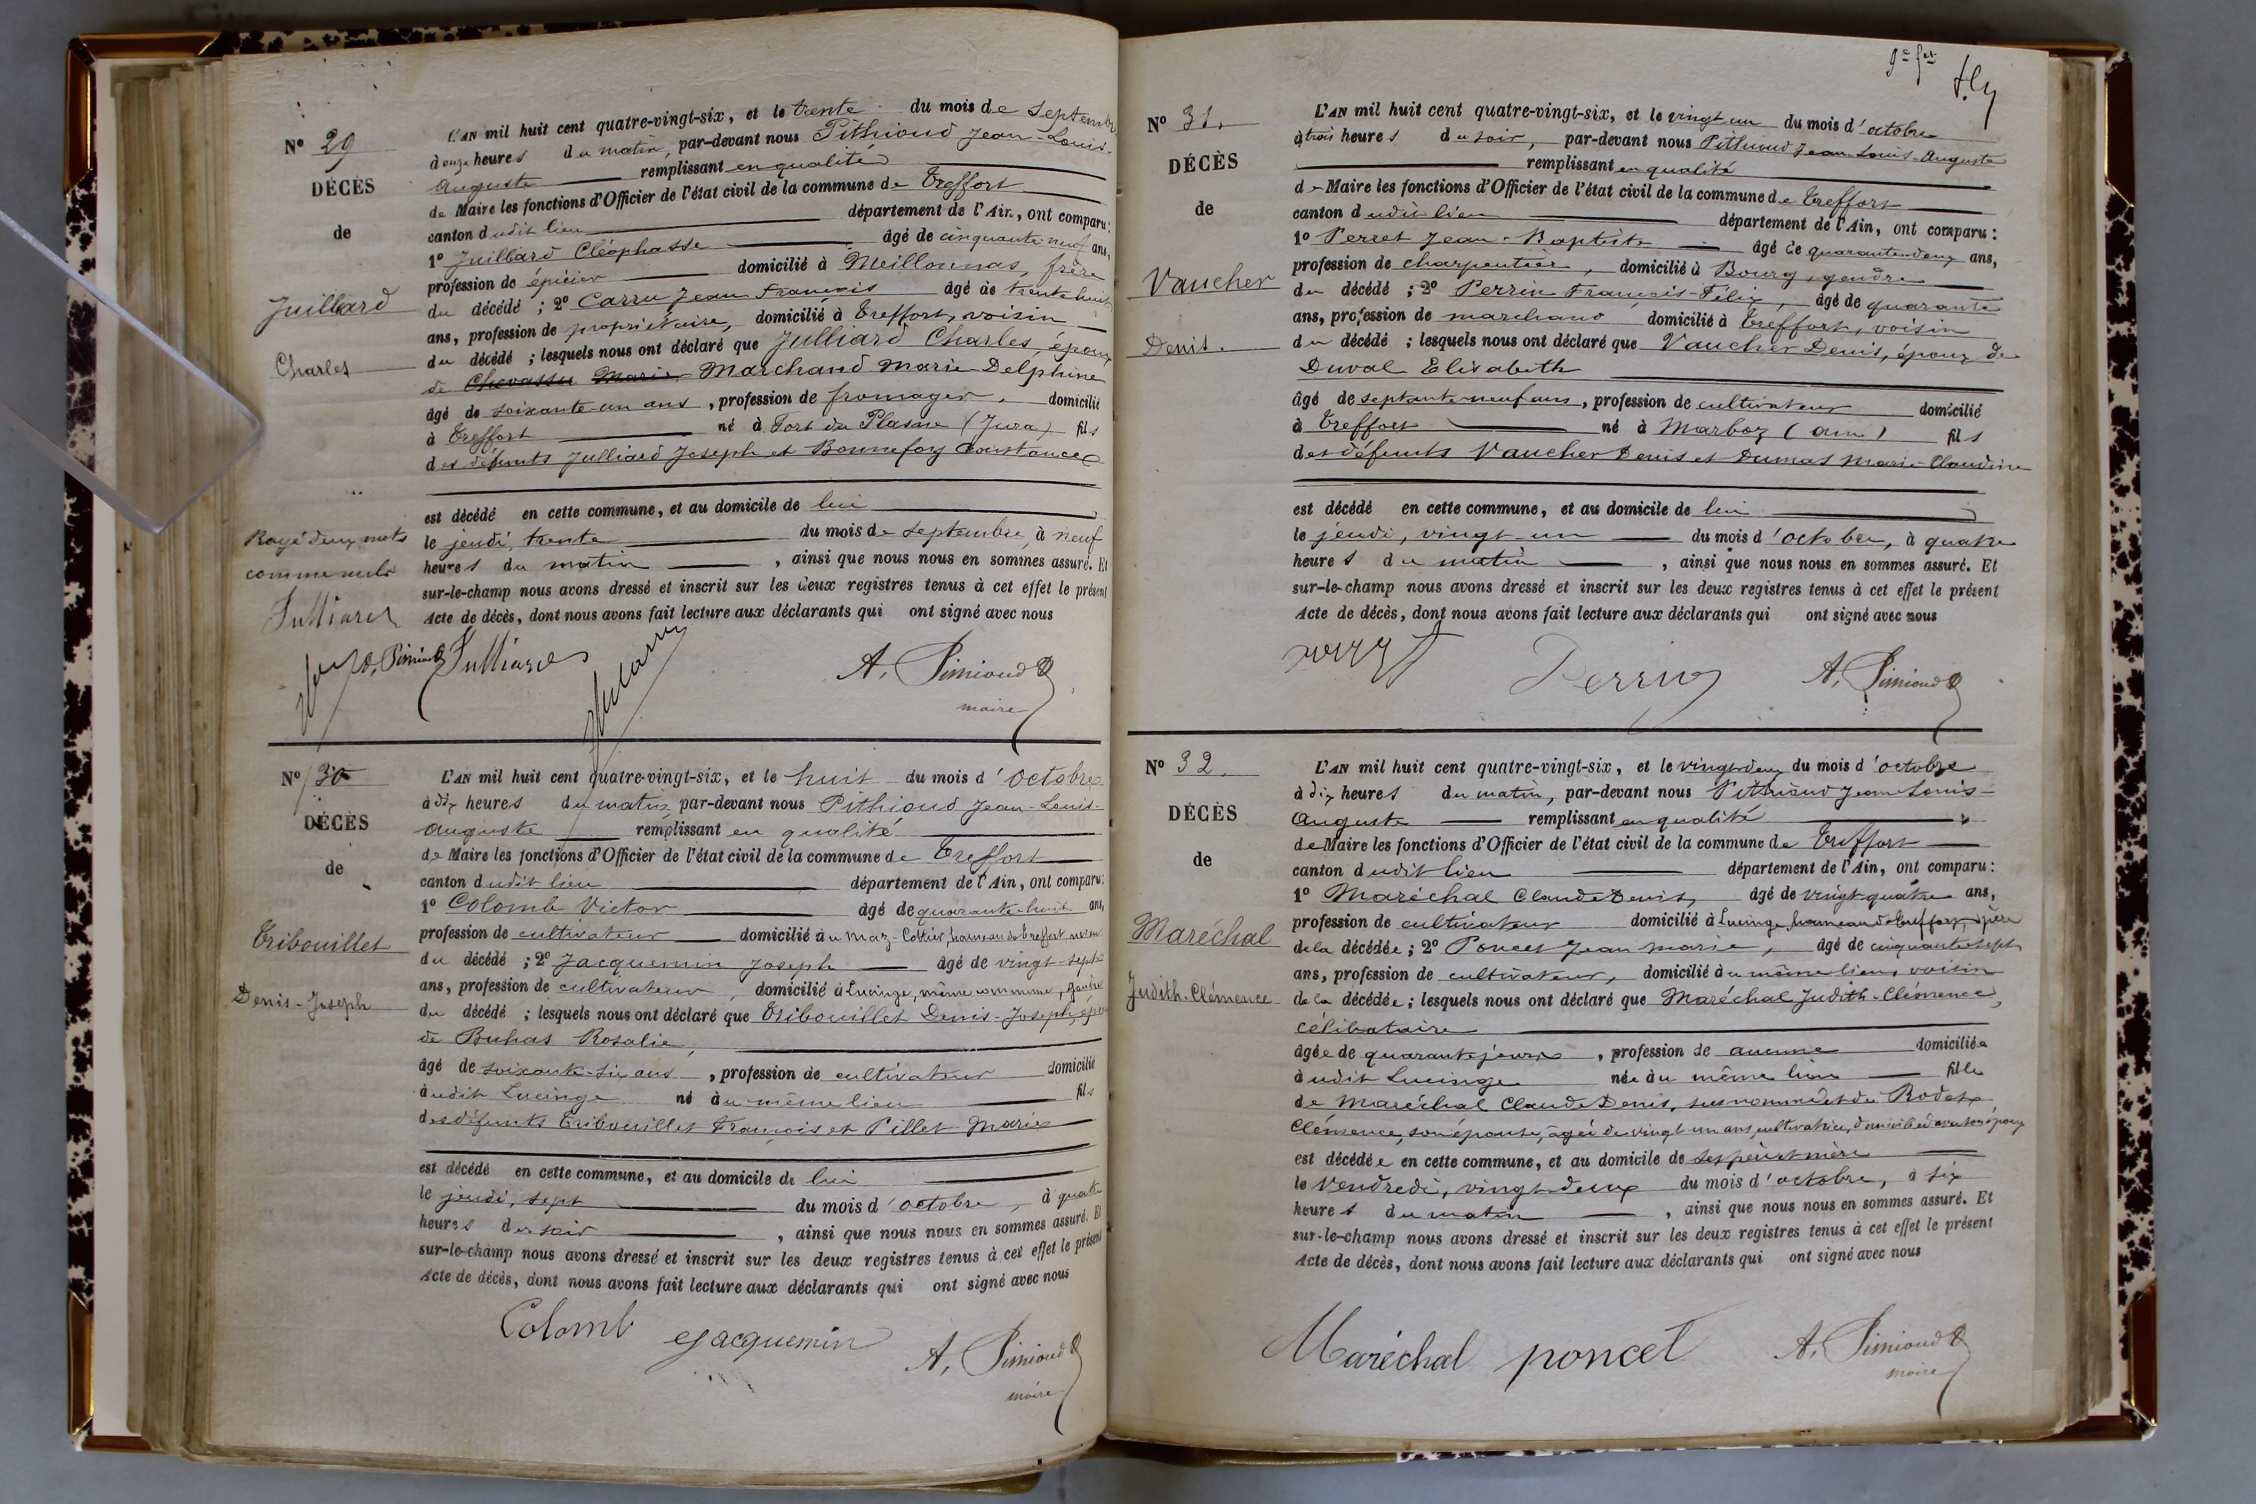 Nº 29
DÉCÈS
de
Juilliard
Charles
L'AN mil huit cent quatre-vingt-six, et le trente du mois de septembre
à onze heures du matin, par-devant nous Pithioud Jean-Louis-
Auguste remplissant en qualité
de Maire les fonctions d'Officier de l'état civil de la commune de Treffort
canton dudit lieu département de l'Ain, ont comparu:
1º Juilliard Cléophasse âgé de cinquante neuf ans,
profession de épicier domicilié à Meillonnas, frère
du décédé ; 2º Carru Jean François âgé de trente huit
ans, profession de propriétaire, domicilié à Treffort, voisin
du décédé ; lesquels nous ont déclaré que Julliard Charles, époux
de Chevassu Marie Marchand Marie Delphine
âgé de soixante-un ans, profession de fromager, domicilié
à Treffort né à Fort du Plasne (Jura) fils
des défunts Julliard Joseph et Bonnefoy Constance
est décédé en cette commune, et au domicile de lui
le jeudi, trente du mois de septembre, à neuf
heures du matin, ainsi que nous nous en sommes assuré. Et
sur-le-champ nous avons dressé et inscrit sur les deux registres tenus à cet effet le présent
Acte de décès, dont nous avons fait lecture aux déclarants qui ont signé avec nous
Rayé deux mots
comme nuls
Julliard
Julliard
A. Pithioud
maire
Nº 30
DÉCÈS
de
Tribouillet
Denis-Joseph
L'AN mil huit cent quatre-vingt-six, et le huit du mois d'octobre
à dix heures du matin, par-devant nous Pithioud Jean-Louis-
Auguste remplissant en qualité
de Maire les fonctions d'Officier de l'état civil de la commune de Treffort
canton dudit lieu département de l'Ain, ont comparu:
1º Colomb Victor âgé de quarante-huit ans,
profession de cultivateur domicilié au Maz-Cottier, hameau de Treffort, neveu
du décédé ; 2º Jacquemin Joseph âgé de vingt-sept
ans, profession de cultivateur, domicilié à Lucinge, même commune, gendre
du décédé ; lesquels nous ont déclaré que Tribouillet Denis-Joseph, époux
de Buhas Rosalie,
âgé de soixante-six ans, profession de cultivateur domicilié
audit Lucinge né au même lieu fils
des défunts Tribouillet François et Pillet Marie
est décédé en cette commune, et au domicile de lui
le jeudi, sept du mois d'octobre, à quatre
heures du soir, ainsi que nous nous en sommes assuré. Et
sur-le-champ nous avons dressé et inscrit sur les deux registres tenus à cet effet le présent
Acte de décès, dont nous avons fait lecture aux déclarants qui ont signé avec nous
Colomb Jacquemin A. Pithioud
maire
Nº 31.
DÉCÈS
de
Vaucher
Denis.
L'AN mil huit cent quatre-vingt-six, et le vingt un du mois d'octobre
à trois heures du soir, par-devant nous Pithioud Jean Louis-Auguste
remplissant en qualité
de Maire les fonctions d'Officier de l'état civil de la commune de Treffort
canton dudit lieu département de l'Ain, ont comparu:
1º Perret Jean-Baptiste âgé de quarante deux ans,
profession de charpentier, domicilié à Bourg, gendre
du décédé ; 2º Perrin François-Félix, âgé de quarante
ans, profession de marchand domicilié à Treffort, voisin
du décédé ; lesquels nous ont déclaré que Vaucher Denis, époux de
Duval Elisabeth
âgé de septante-neuf ans, profession de cultivateur domicilié
à Treffort né à Marboz (Ain) fils
des défunts Vaucher Denis et Dumas Marie-Claudine
est décédé en cette commune, et au domicile de lui
le jeudi, vingt-un du mois d'octobre, à quatre
heures du matin, ainsi que nous nous en sommes assuré. Et
sur-le-champ nous avons dressé et inscrit sur les deux registres tenus à cet effet le présent
Acte de décès, dont nous avons fait lecture aux déclarants qui ont signé avec nous
Perrin A. Pithioud
Nº 32.
DÉCÈS
de
Maréchal
Judith-Clémence
L'AN mil huit cent quatre-vingt-six, et le vingt-deux du mois d'octobre
à dix heures du matin, par-devant nous Pithioud Jean Louis-
Auguste remplissant en qualité
de Maire les fonctions d'Officier de l'état civil de la commune de Treffort
canton dudit lieu département de l'Ain, ont comparu:
1º Maréchal Claude Denis, âgé de vingt-quatre ans,
profession de cultivateur domicilié à Lucinge, hameau de Treffort, père
de la décédée ; 2º Poncet Jean Marie, âgé de cinquante sept
ans, profession de cultivateur, domicilié au même lieu, voisin
de la décédée ; lesquels nous ont déclaré que Maréchal Judith-Clémence,
célibataire
âgée de quarante jours, profession de aucune domiciliée
audit Lucinge née au même lieu fille
de Maréchal Claude Denis, susnommé et de Rodet
Clémence, son épouse, âgée de vingt un ans, cultivatrice, domiciliée avec son époux
est décédée en cette commune, et au domicile de ses père et mère
le vendredi, vingt-deux du mois d'octobre, à six
heures du matin, ainsi que nous nous en sommes assuré. Et
sur-le-champ nous avons dressé et inscrit sur les deux registres tenus à cet effet le présent
Acte de décès, dont nous avons fait lecture aux déclarants qui ont signé avec nous
Maréchal poncet A. Pithioud
maire